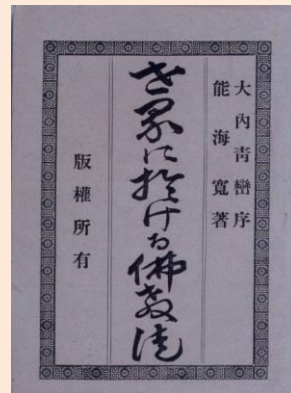 大內青巒序
能海寬著
世界に於ける佛敎徒
版權所有